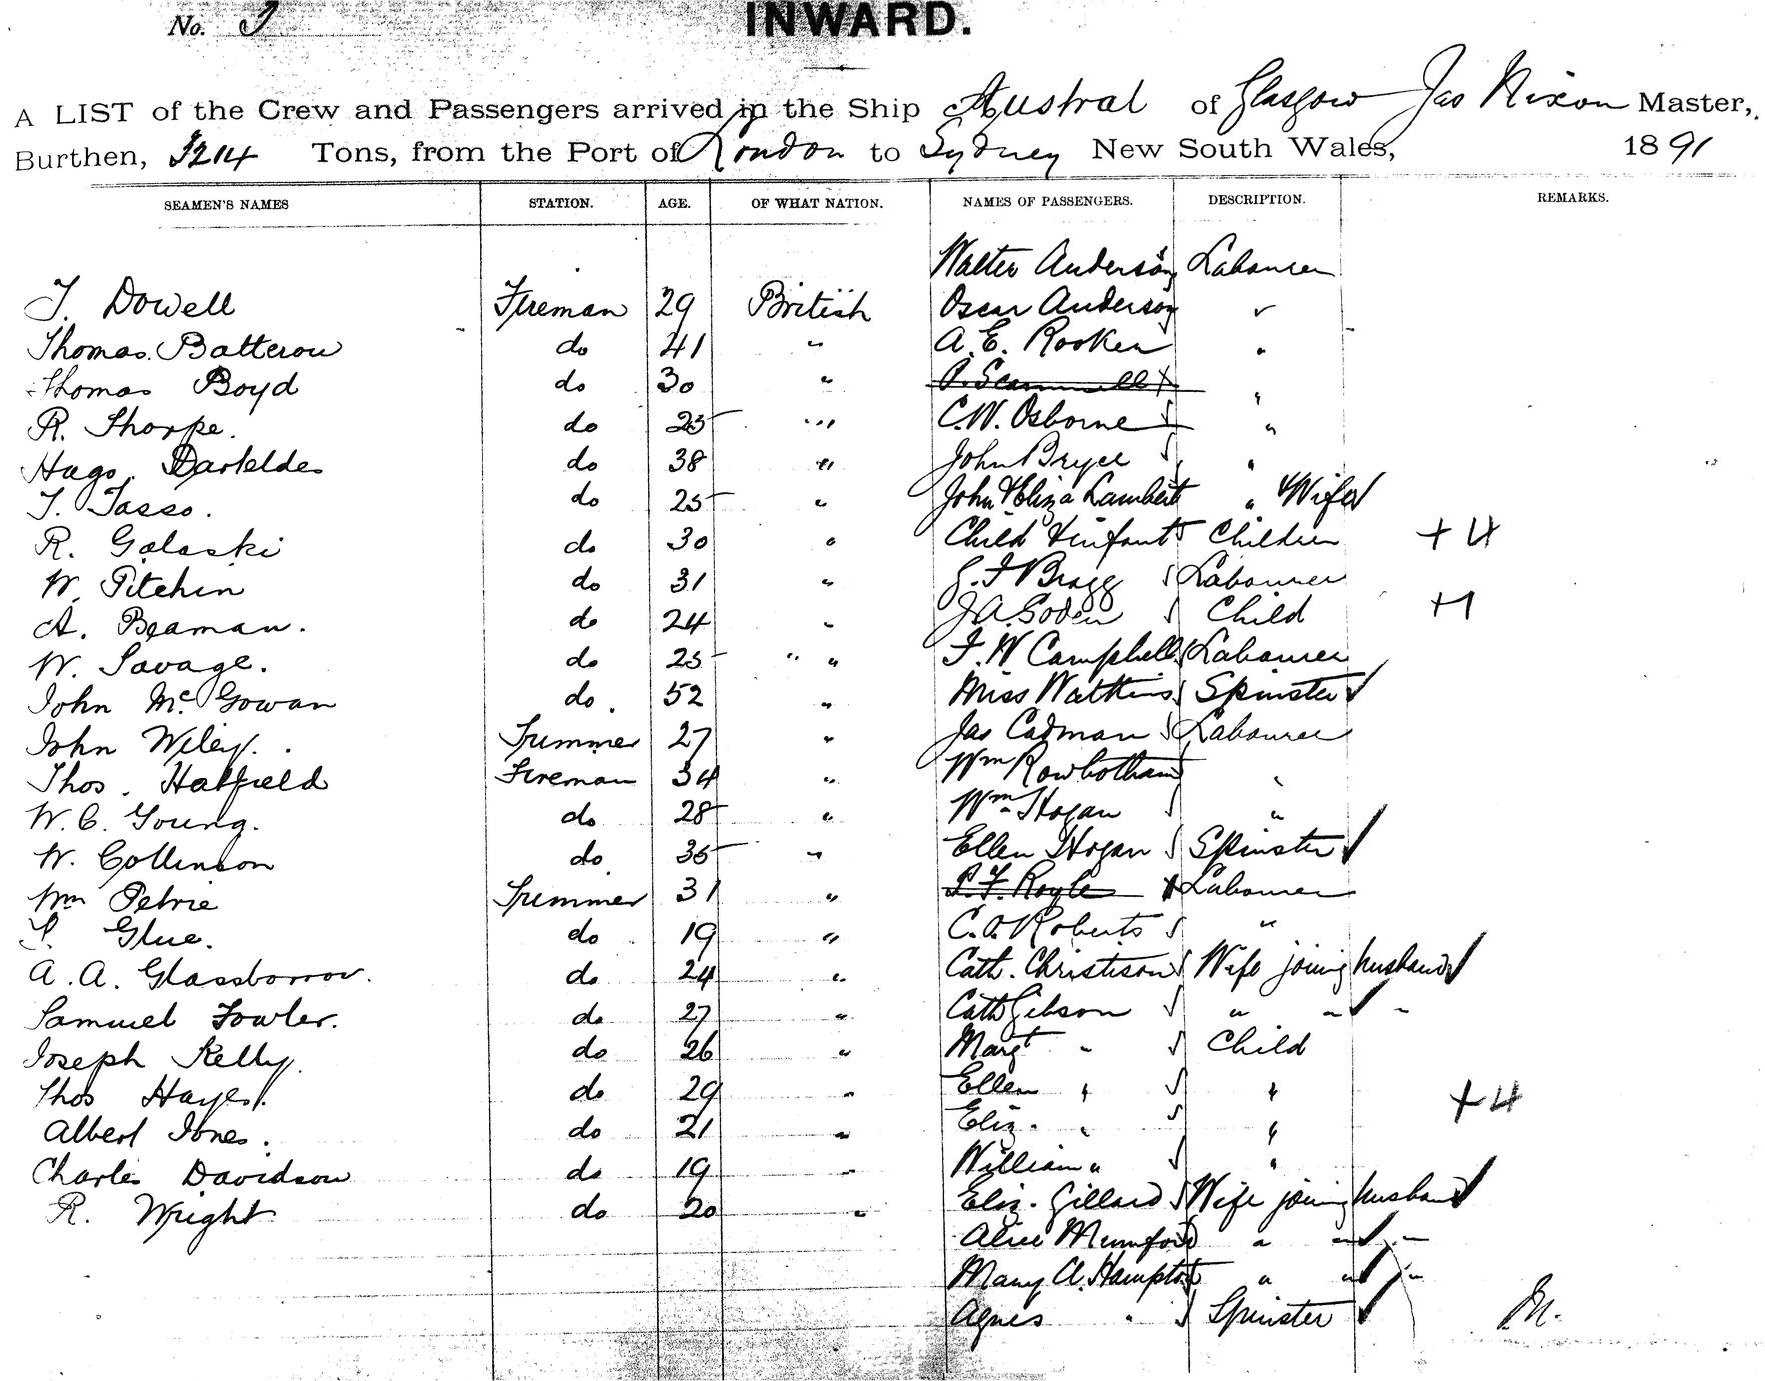 No. 3
INWARD.
A LIST of the Crew and Passengers arrived in the Ship Austral of Glasgow Jas Nixon Master,
Burthen, 3214 Tons, from the Port of London to Sydney New South Wales, 1891
SEAMEN'S NAMES STATION. AGE. OF WHAT NATION. NAMES OF PASSENGERS. DESCRIPTION. REMARKS.
Walter Anderson Labourer
J. Dowell Fireman 29 British Oscar Anderson "
Thomas Batterow do 41 " A. E. Rooken "
Thomas Boyd do 30 " "
R. Thorpe. do 25 " C. W. Osborne "
Hugo do 38 " John Bryce "
T. Tasso. do 25 " John & Eliza Lambert " & Wife
R. Golaski do 30 " Child & infant Children + 4
W. Pitchin do 31 " G. F Bragg Labourer
A. Beaman. do 24 " J A. Soden Child + 1
W. Savage. do 25 " F. W Campbell Labourer
John McGowan do. 52 " Miss Watkins Spinster
John Wiley. Trimmer 27 " Jas Cadman Labourer
Thos. Hatfield Fireman 34 " Wm Rowbotham "
W. C. Young. do 28 " Wm Hogan "
W. Collinson do 35 " Ellen Hogan Spinster
Wm Petrie Trimmer 31 " P. F. Royle Labourer
S. Glue. do 19 " C. A. Roberts "
A. A. Glassborrow. do 24 " Cath. Christison Wife joining husband
Samuel Fowler. do 27 " Cath Gibson " " "
Joseph Kelly. do 26 " Margt " Child
Thos Hayes. do 29 " Ellen " " + 4
Albert Jones. do 21 " Eliz. " "
Charles Davidson do 19 " William " "
R. Wright do 20 " Eliz. Gillard Wife joining husband
Alice Mumford " " "
Mary A. Hampton " " "
Agnes " Spinster M.